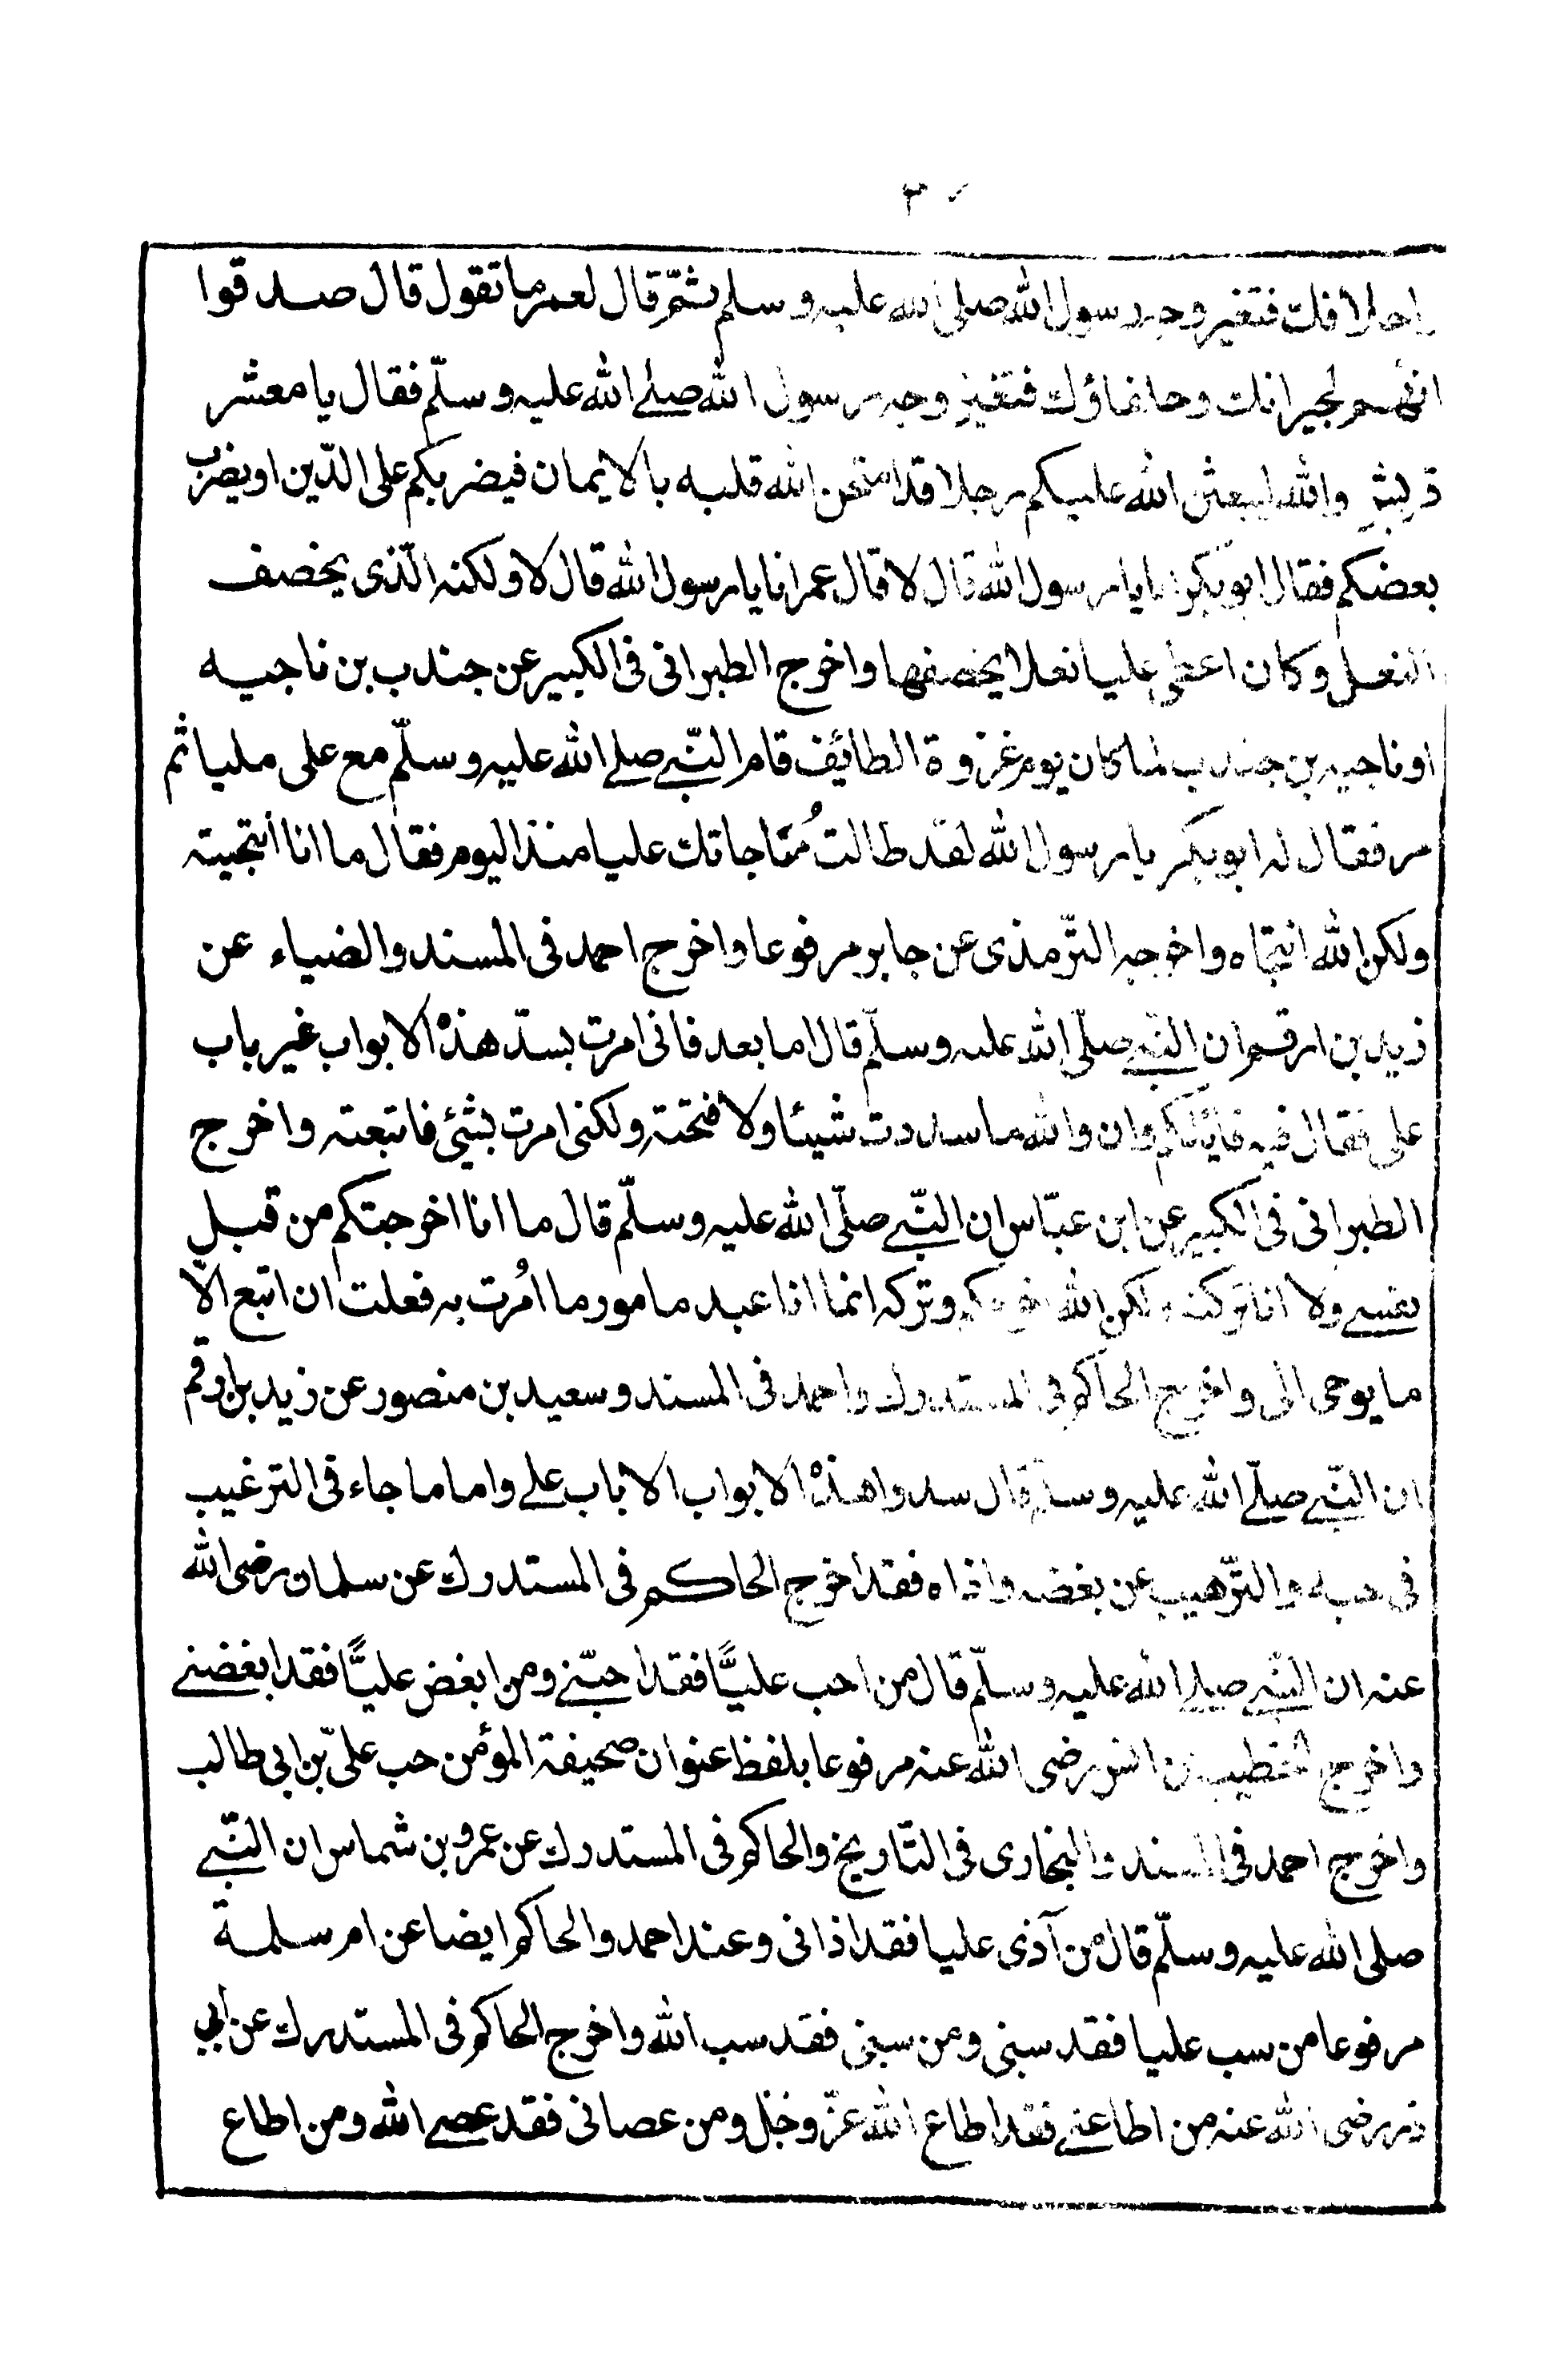 ٣
احلافك فتغير وجه رسول الله صلى الله عليه وسلم ثمّ قال لعمر ما تقول قال صدقوا
انهم لجيرانك وحلفاؤك فتغير وجه رسول الله صلے الله عليه وسلّم فقال يا معشر
قريش والله ليبعثن الله عليكم رجلا قد امتحن الله قلبه بالايمان فيضربكم على الدّين او يضرب
بعضكم فقال ابو بكر انا يا رسول الله قال لا قال عمر انا يا رسول الله قال لا ولكنه الّذى يخصف
النعل وكان اعطى عليا نعلا يخصفها واخرج الطبرانى فى الكبير عن جندب بن ناجيه
او ناجيه بن جندب لما كان يوم غزوة الطائف قام النّبے صلے الله عليه وسلّم مع على مليا ثم
مر فقال له ابو بكر يا رسول الله لقد طالت مُنَاجاتك عليا منذ اليوم فقال ما انا انتجيته
ولكن الله انتجاه واخرجه التّرمذى عن جابر مرفوعا واخرج احمد فى المسند والضياء عن
زيد بن ارقم ان النّبے صلّى الله عليه وسلّم قال اما بعد فانى امرت بسدّ هذه الابواب غير باب
على فقال فيه قائلكم وان والله ما سددت شيئا ولا فتحته ولكنى امرت بشئي فاتبعته واخرج
الطبرانى فى الكبير عن ابن عبّاس ان النّبے صلّى الله عليه وسلّم قال ما انا اخرجتكم من قبل
نفسے ولا انا تركته ولكن الله اخرجكم وتركه انما انا عبد مامور ما اُمرت به فعلت ان اتبع الّا
ما يوحى الى واخرج الحاكم فى المستدرك واحمد فى المسند وسعيد بن منصور عن زيد بن ارقم
ان النّبے صلّے الله عليه وسلّم قال سدوا هذه الابواب الا باب علے واما ما جاء فى الترغيب
فى حبه والتّرهيب عن بغضه واذاه فقد اخرج الحاكم فى المستدرك عن سلمان رضى الله
عنه ان النّبے صلے الله عليه وسلّم قال من احب عليًّا فقد احبّنے ومن ابغض عليًّا فقد ابغضنے
واخرج الخطيب عن انس رضى الله عنه مرفوعا بلفظ عنوان صحيفة المؤمن حب علىّ بن ابي طالب
واخرج احمد فى المسند والبخارى فى التّاريخ والحاكم فى المستدرك عن عمرو بن شماس ان النّبے
صلى الله عليه وسلّم قال من آذى عليا فقد اذانى وعند احمد والحاكم ايضا عن ام سلمة
مرفوعا من سب عليا فقد سبنى ومن سبنى فقد سب الله واخرج الحاكم فى المستدرك عن أبي
ذر رضى الله عنه من اطاعنے فقد اطاع الله عزّ وجل ومن عصانى فقد عصے الله ومن اطاع